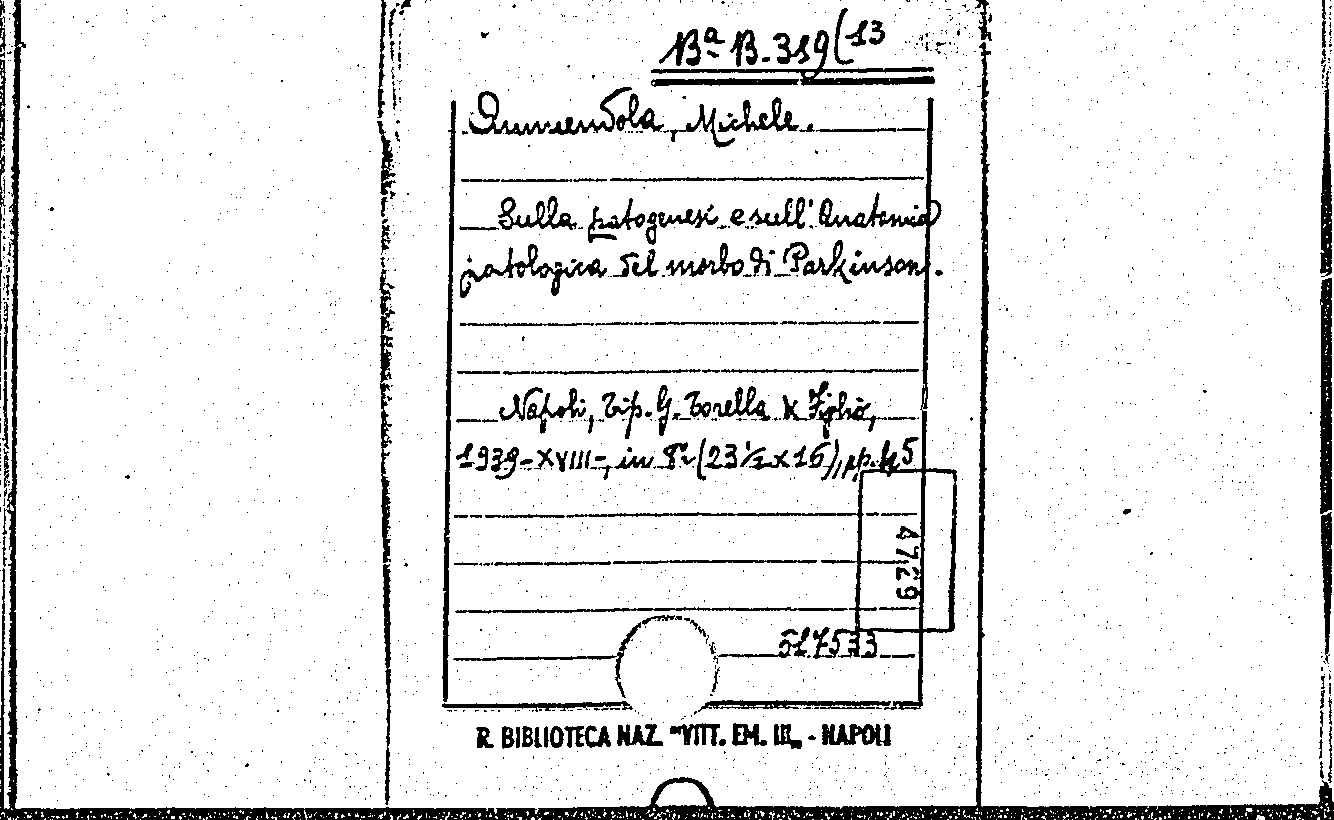 Bª B. 319(13
Ammendola, Michele.
Sulla patogenesi e sull'Anatomia
patologica del morbo di Parkinson.
Napoli, Tip. G. Torella & Figlio,
1939-XVIII-, in 8º (23½ x 16), pp. 45
4729
517533
R. BIBLIOTECA NAZ. "VITT. EM. III„ - NAPOLI